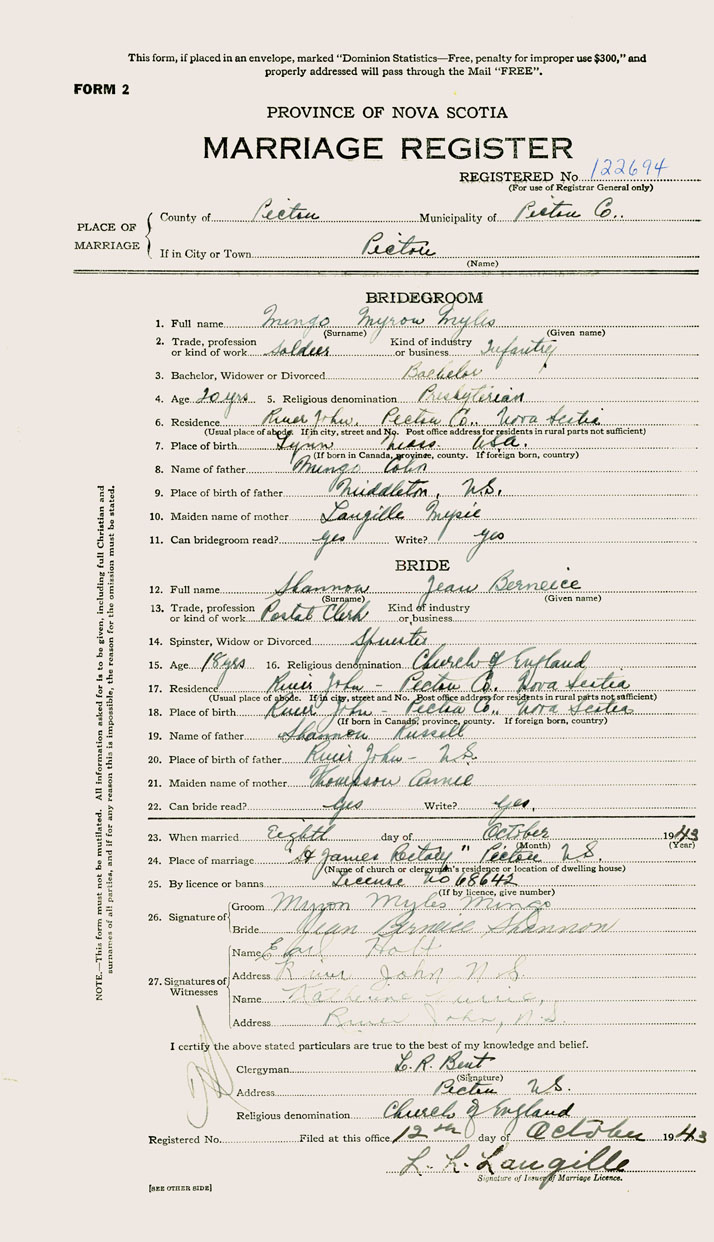 This form, if placed in an envelope, marked "Dominion Statistics—Free, penalty for improper use $300," and
properly addressed will pass through the Mail "FREE".
FORM 2
PROVINCE OF NOVA SCOTIA
MARRIAGE REGISTER
REGISTERED No. 122694
(For use of Registrar General only)
PLACE OF MARRIAGE
County of Pictou Municipality of Pictou Co..
If in City or Town Pictou
(Name)
BRIDEGROOM
1. Full name Mingo Myron Myles
(Surname) (Given name)
2. Trade, profession or kind of work Soldier Kind of industry or business Infantry
3. Bachelor, Widower or Divorced Bachelor
4. Age 20 yrs 5. Religious denomination Presbyterian
6. Residence River John, Pictou Co., Nova Scotia
(Usual place of abode. If in city, street and No. Post office address for residents in rural parts not sufficient)
7. Place of birth Lynn Mass. USA.
(If born in Canada, province, county. If foreign born, country)
8. Name of father Mingo Colin
9. Place of birth of father Middleton, N.S.
10. Maiden name of mother Langille Mysie
11. Can bridegroom read? yes Write? yes
BRIDE
12. Full name Shannon Jean Berneice
(Surname) (Given name)
13. Trade, profession or kind of work Postal Clerk Kind of industry or business
14. Spinster, Widow or Divorced Spinster
15. Age 18 yrs 16. Religious denomination Church of England
17. Residence River John - Pictou Co., Nova Scotia
(Usual place of abode. If in city, street and No. Post office address for residents in rural parts not sufficient)
18. Place of birth River John - Pictou Co., Nova Scotia
(If born in Canada, province, county. If foreign born, country)
19. Name of father Shannon Russell
20. Place of birth of father River John - N.S.
21. Maiden name of mother Thompson Annie
22. Can bride read? yes Write? yes.
23. When married Eighth day of October 1943
(Month) (Year)
24. Place of marriage "St James Rectory" Pictou N.S.
(Name of church or clergyman's residence or location of dwelling house)
25. By licence or banns License No 68642
(If by licence, give number)
26. Signature of Groom Myron Myles Mingo
Bride Jean Berneice Shannon
27. Signatures of Witnesses
Name Holt
Address River John N.S.
Name Katherine
Address River John, N.S.
I certify the above stated particulars are true to the best of my knowledge and belief.
Clergyman L. R. Bent
(Signature)
Address Pictou N.S.
Religious denomination Church of England
Registered No. Filed at this office 12th day of October 1943
L. L. Langille
Signature of Issuer of Marriage Licence.
[SEE OTHER SIDE]
NOTE.—This form must not be mutilated. All information asked for is to be given, including full Christian and
surnames of all parties, and if for any reason this is impossible, the reason for the omission must be stated.